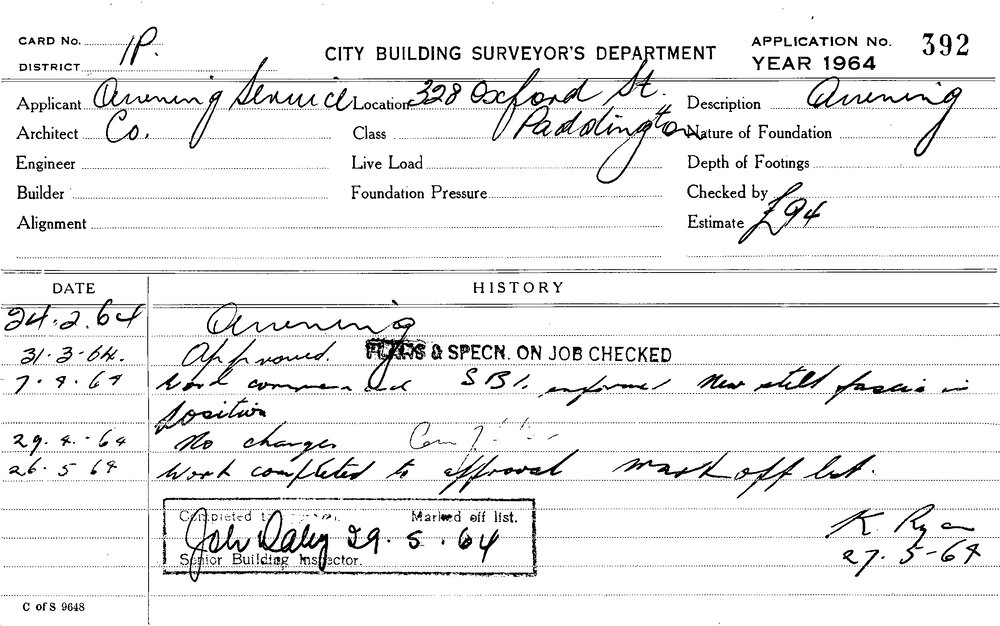 CARD No. 1P. CITY BUILDING SURVEYOR'S DEPARTMENT APPLICATION No. 392
DISTRICT YEAR 1964
Applicant Awning Service Location 328 Oxford St. Description Awning
Architect Co. Class Paddington Nature of Foundation
Engineer Live Load Depth of Footings
Builder Foundation Pressure Checked by
Alignment Estimate £94
DATE HISTORY
24.2.64 Awning
31-3-64. Approved. PLANS & SPECN. ON JOB CHECKED
7-4-64 Work commenced SBI. informed New steel fascia in
position
29.4.-64 No change
26.5 64 Work completed to approval mark off list.
Completed to Marked off list.
John Daley 29.5.64 K Ryan
Senior Building Inspector. 27-5-64
C of S 9648